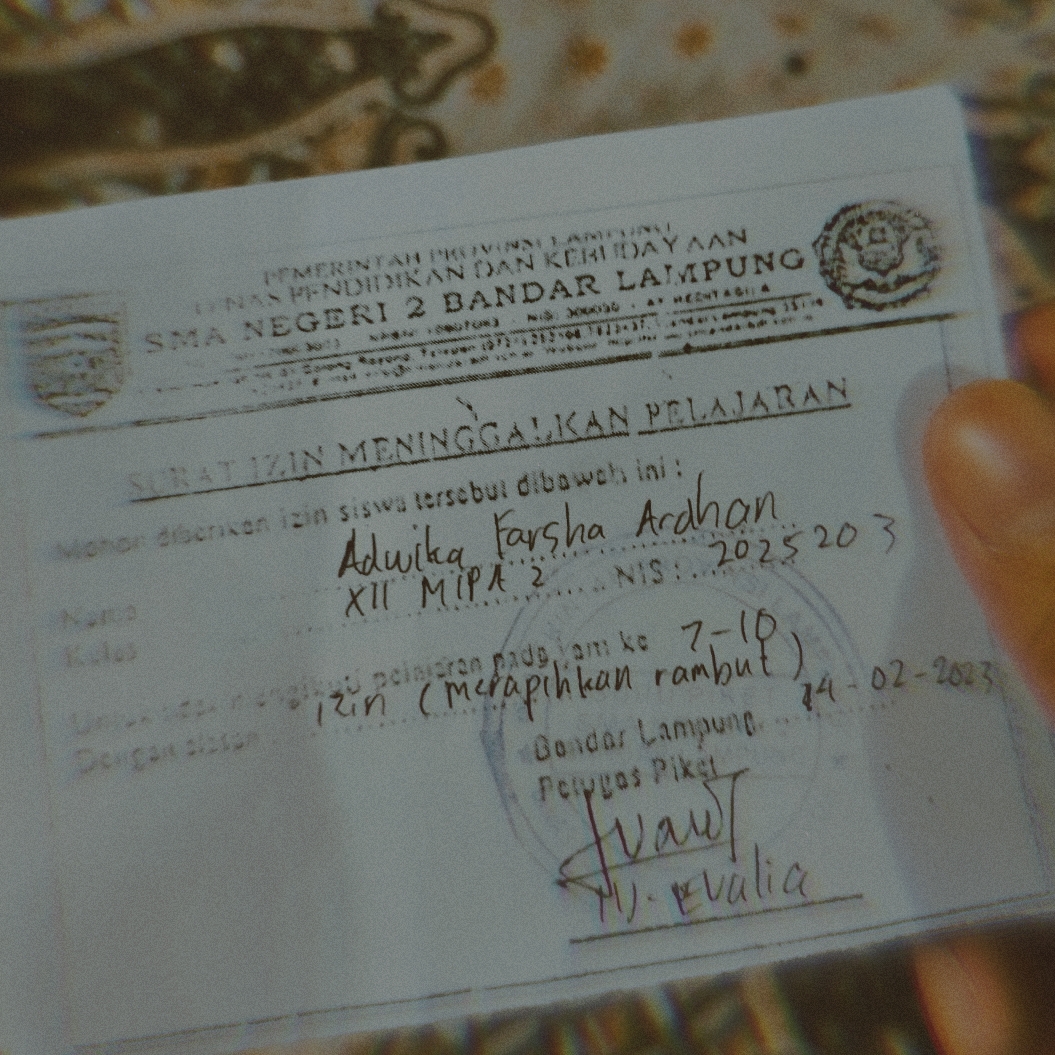 PEMERINTAH PROVINSI LAMPUNG
DINAS PENDIDIKAN DAN KEBUDAYAAN
SMA NEGERI 2 BANDAR LAMPUNG
SURAT IZIN MENINGGALKAN PELAJARAN
Mohon diberikan izin siswa tersebut dibawah ini :
Nama Adwika Farsha Ardhan
Kelas XII MIPA 2 NIS : 2025203
Untuk tidak mengikuti pelajaran pada jam ke 7-10
Dengan alasan izin (merapihkan rambut)
Bandar Lampung, 14-02-2023
Petugas Piket
Evalia